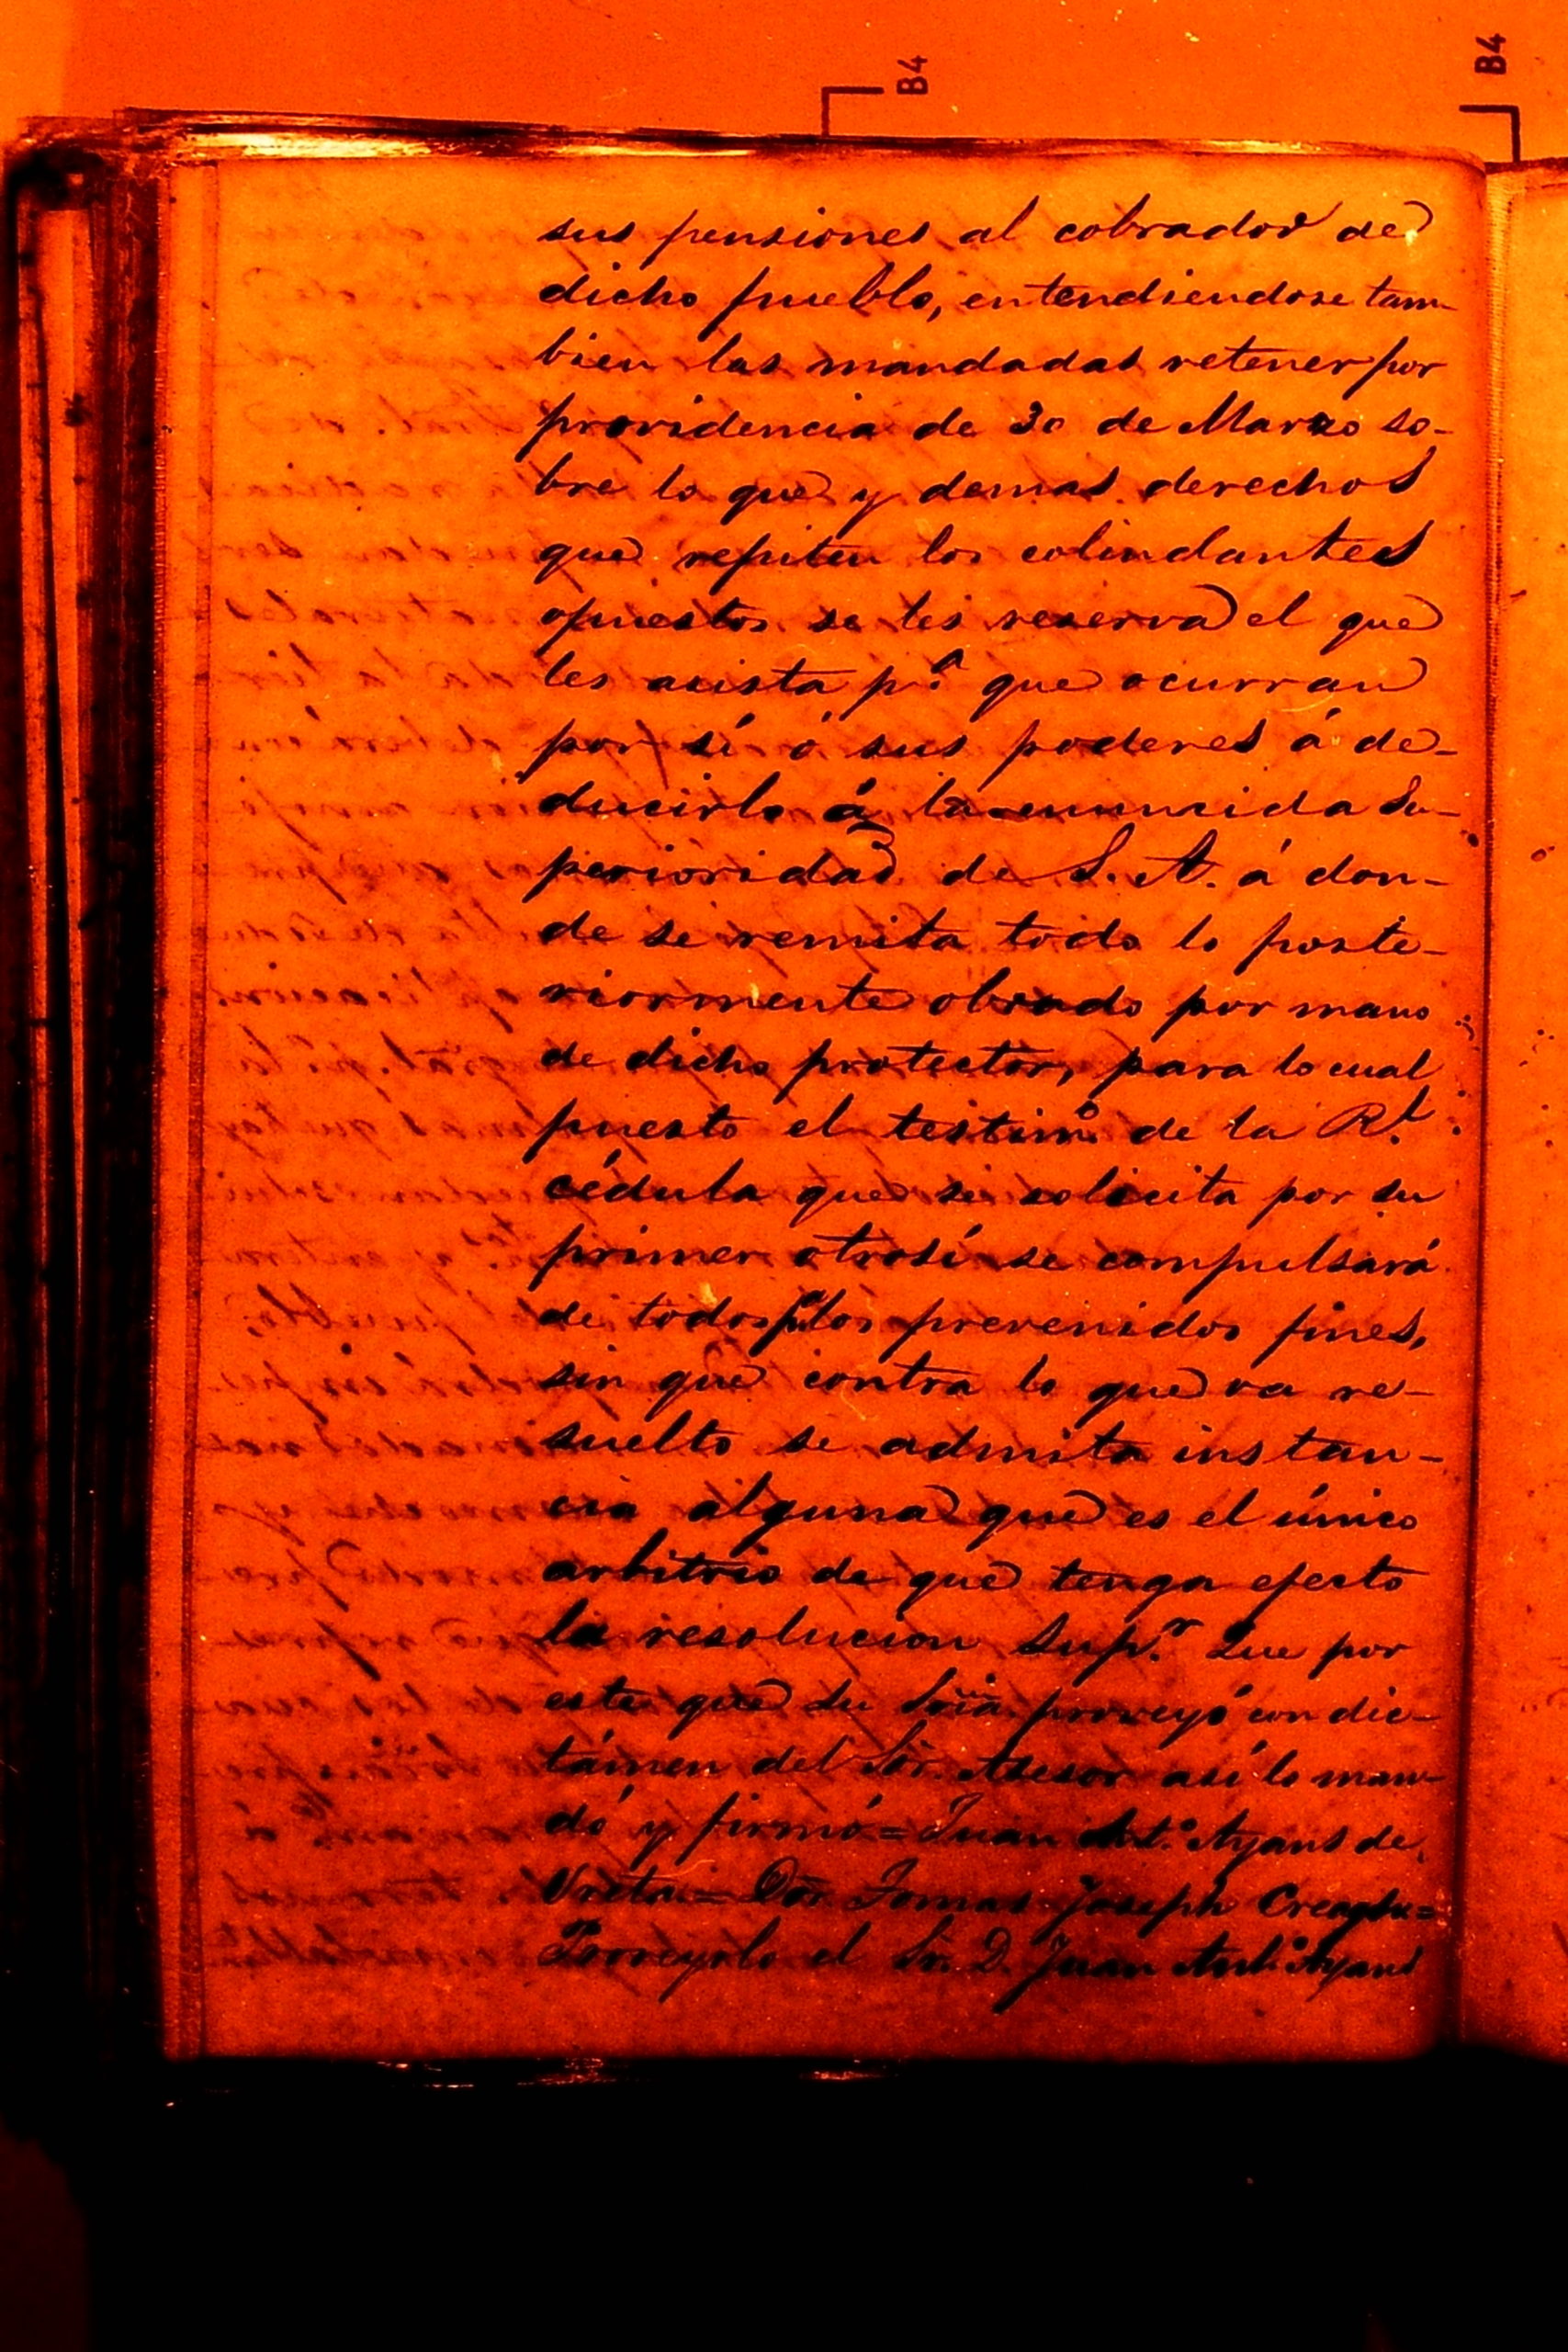 B4
B4
sus pensiones al cobrador de
dicho pueblo, entendiendose tam-
bien las mandadas retener por
providencia de 30 de Marzo so-
bre lo que y demas derechos
que repiten los colindantes
opuestos se les reserva el que
les asista p.ª que ocurran
por sí ó sus poderes á de-
ducirlo á la enunciida Su-
perioridad de S. A. á don-
de se remita todo lo poste-
riormente obrado por mano
de dicho protector, para lo cual
puesto el testim.º de la R.l
cédula que se solicita por su
primer otrosí se compulsará
de todos p.ª los prevenidos fines,
sin que contra lo que va re-
suelto se admita instan-
cia alguna que es el único
arbitrio de que tenga efecto
la resolucion sup.r Que por
este que Su Sria. proveyó con dic-
támen del Sõr. Asesor así lo man-
dó y firmó = Juan Ant.º Ayans de
Ureta = Dõr. Tomas Joseph
Proveyolo el Sr. D. Juan Ant.º Ayans